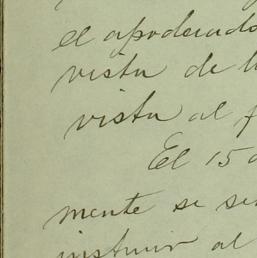 el apoderado
vista de l
vista al f
El 15 d
mente se se
instruir al